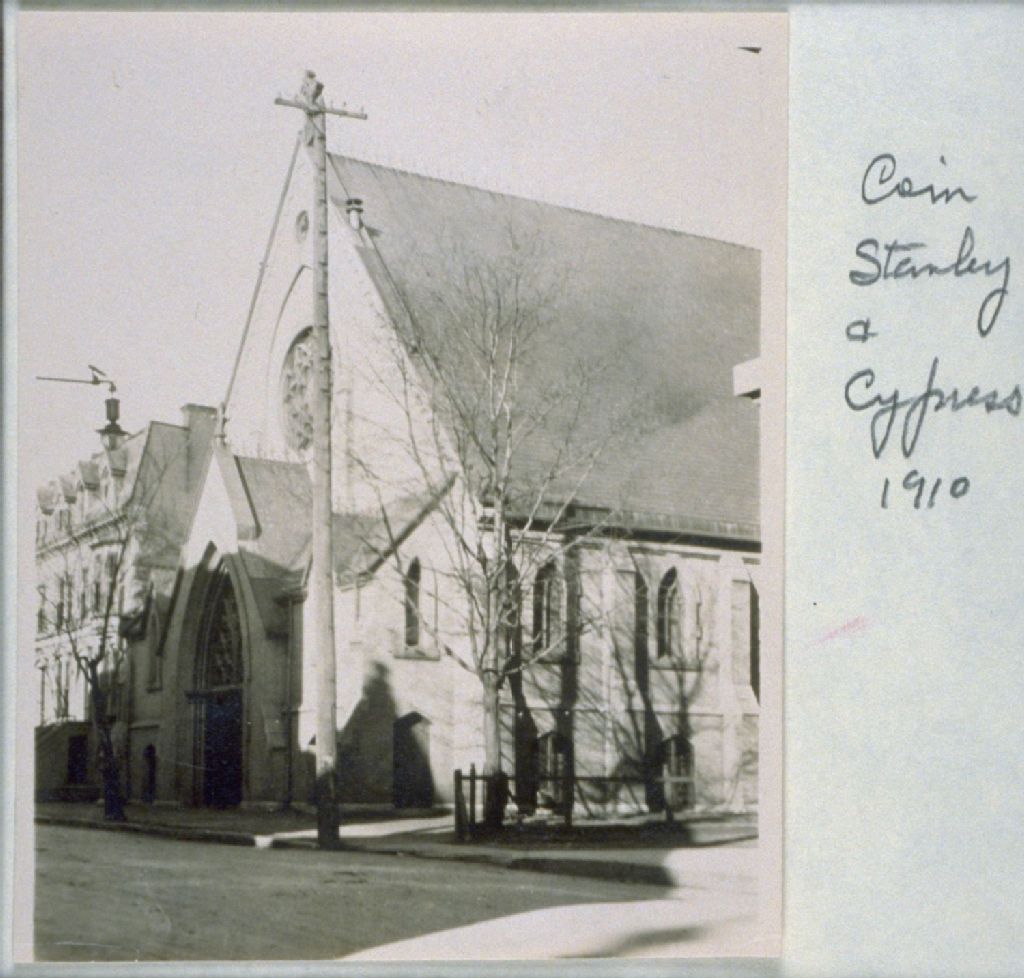 Coin
Stanley
&
Cypress
1910